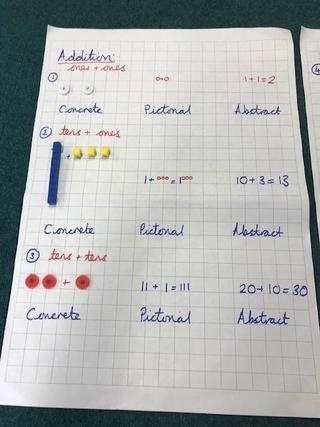 Addition:
ones + ones
① o+o 1+1=2
Concrete Pictorial Abstract
② tens + ones
+
1+ooo=1ooo 10+3=13
Concrete Pictorial Abstract
③ tens + tens
+
11+1=111 20+10=30
Concrete Pictorial Abstract
④